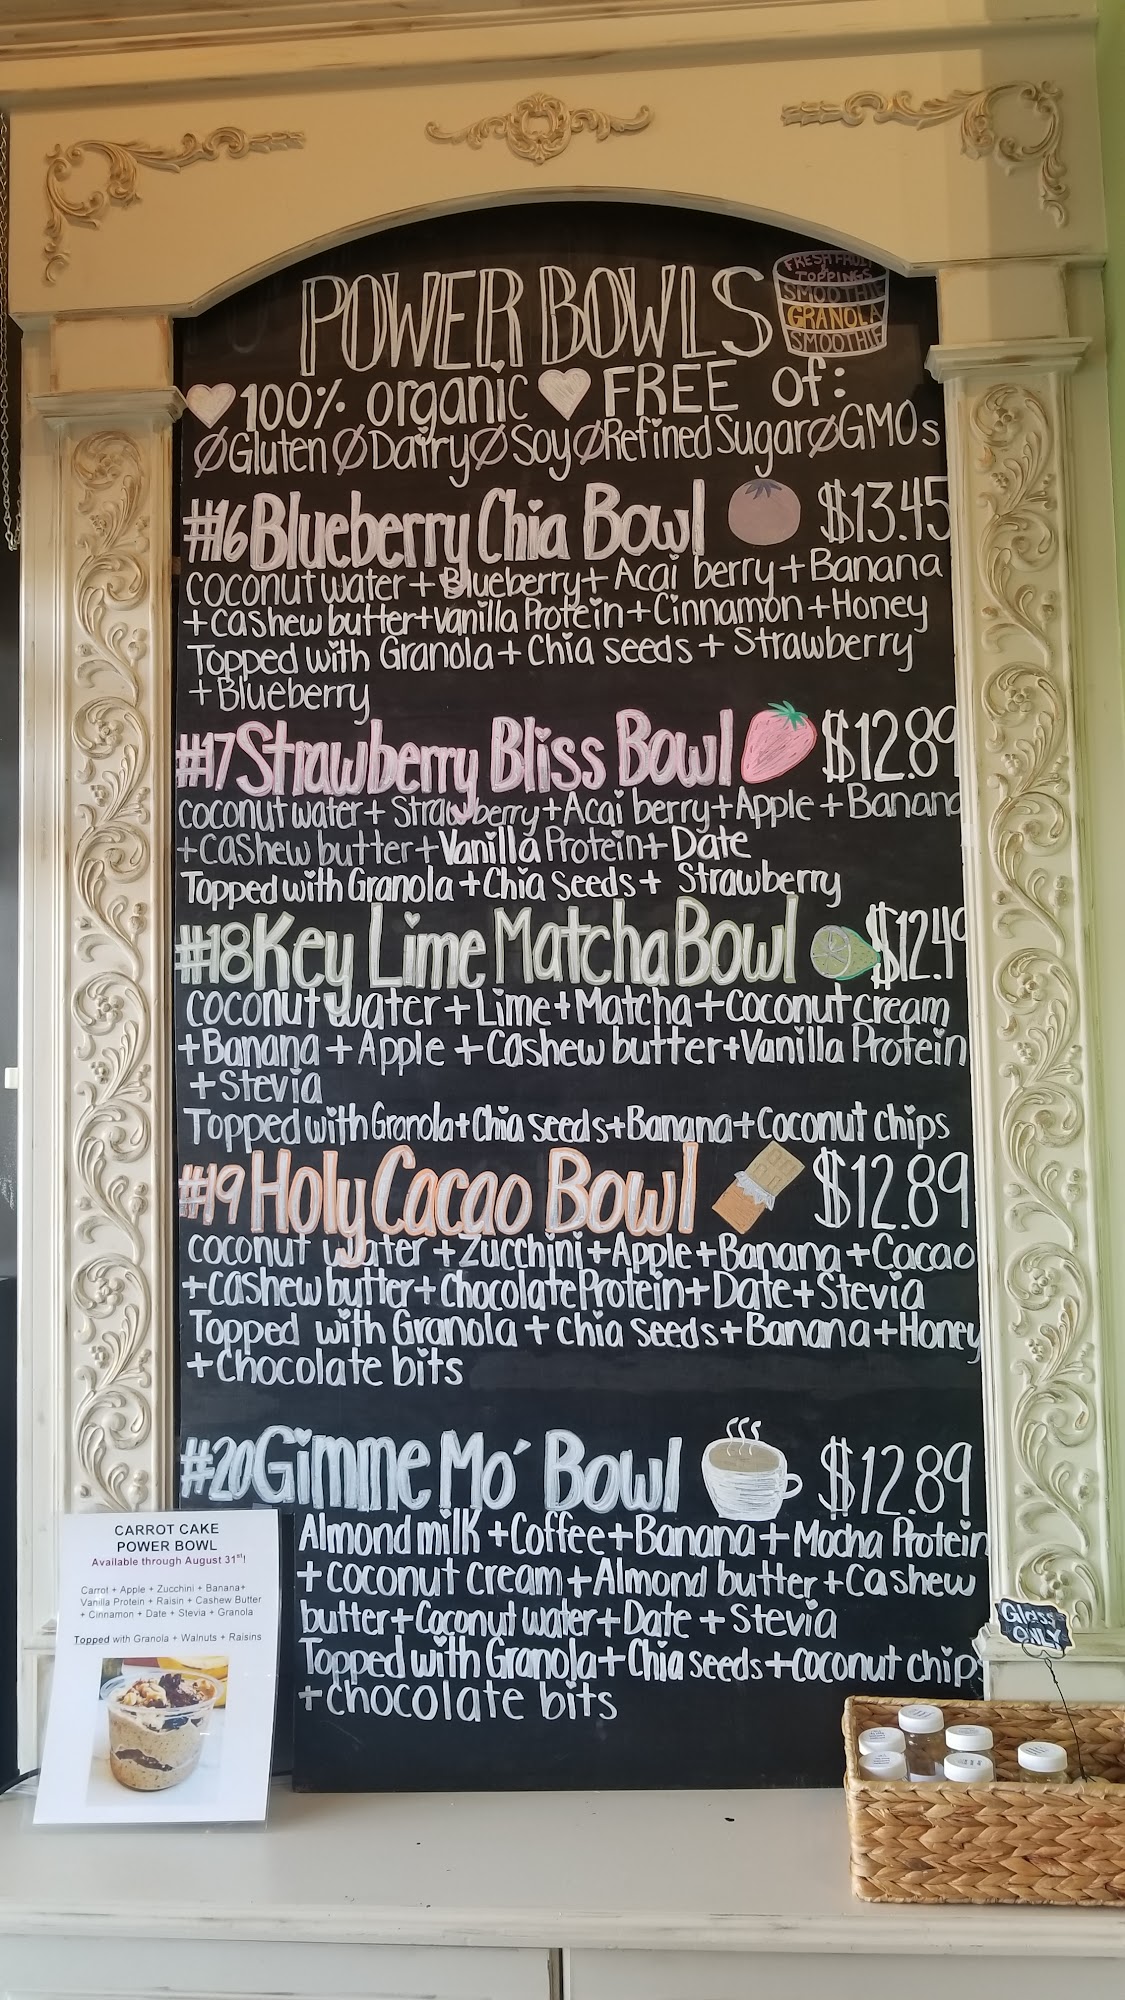 POWER BOWLS
FRESH FRUIT
& TOPPINGS
SMOOTHIE
GRANOLA
SMOOTHIE
100% organic FREE of:
Gluten Dairy Soy Refined Sugar GMOs
#16 Blueberry Chia Bowl $13.45
coconut water + Blueberry + Acai berry + Banana
+ cashew butter + Vanilla Protein + Cinnamon + Honey
Topped with Granola + Chia seeds + Strawberry
+ Blueberry
#17 Strawberry Bliss Bowl $12.89
coconut water + Strawberry + Acai berry + Apple + Banana
+ cashew butter + Vanilla Protein + Date
Topped with Granola + Chia seeds + Strawberry
#18 Key Lime Matcha Bowl $12.49
coconut water + Lime + Matcha + coconut cream
+ Banana + Apple + Cashew butter + Vanilla Protein
+ Stevia
Topped with Granola + Chia seeds + Banana + Coconut chips
#19 Holy Cacao Bowl $12.89
coconut water + Zucchini + Apple + Banana + Cacao
+ cashew butter + Chocolate Protein + Date + Stevia
Topped with Granola + Chia seeds + Banana + Honey
+ Chocolate bits
#20 Gimme Mo' Bowl $12.89
Almond milk + Coffee + Banana + Mocha Protein
+ coconut cream + Almond butter + Cashew
butter + Coconut water + Date + Stevia
Topped with Granola + Chia seeds + coconut chip
+ chocolate bits
CARROT CAKE
POWER BOWL
Available through August 31st!
Carrot + Apple + Zucchini + Banana+
Vanilla Protein + Raisin + Cashew Butter
+ Cinnamon + Date + Stevia + Granola
Topped with Granola + Walnuts + Raisins
Glass
ONLY